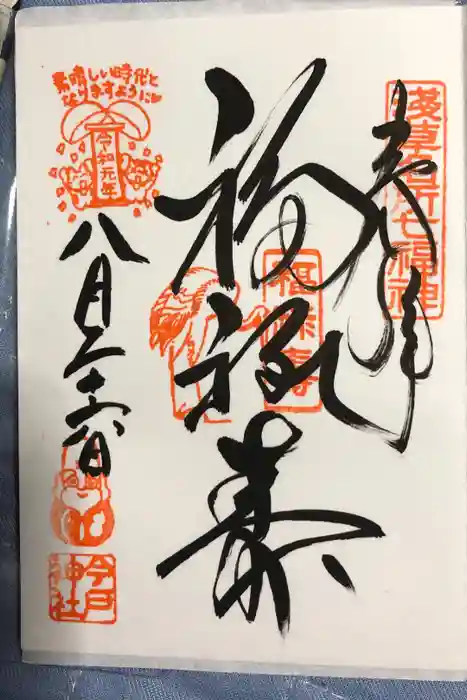 奉拝
浅草名所七福神
福禄寿
福禄寿
素晴しい時代と
なりますように
令和元年
八月二十六日
今戸
神社